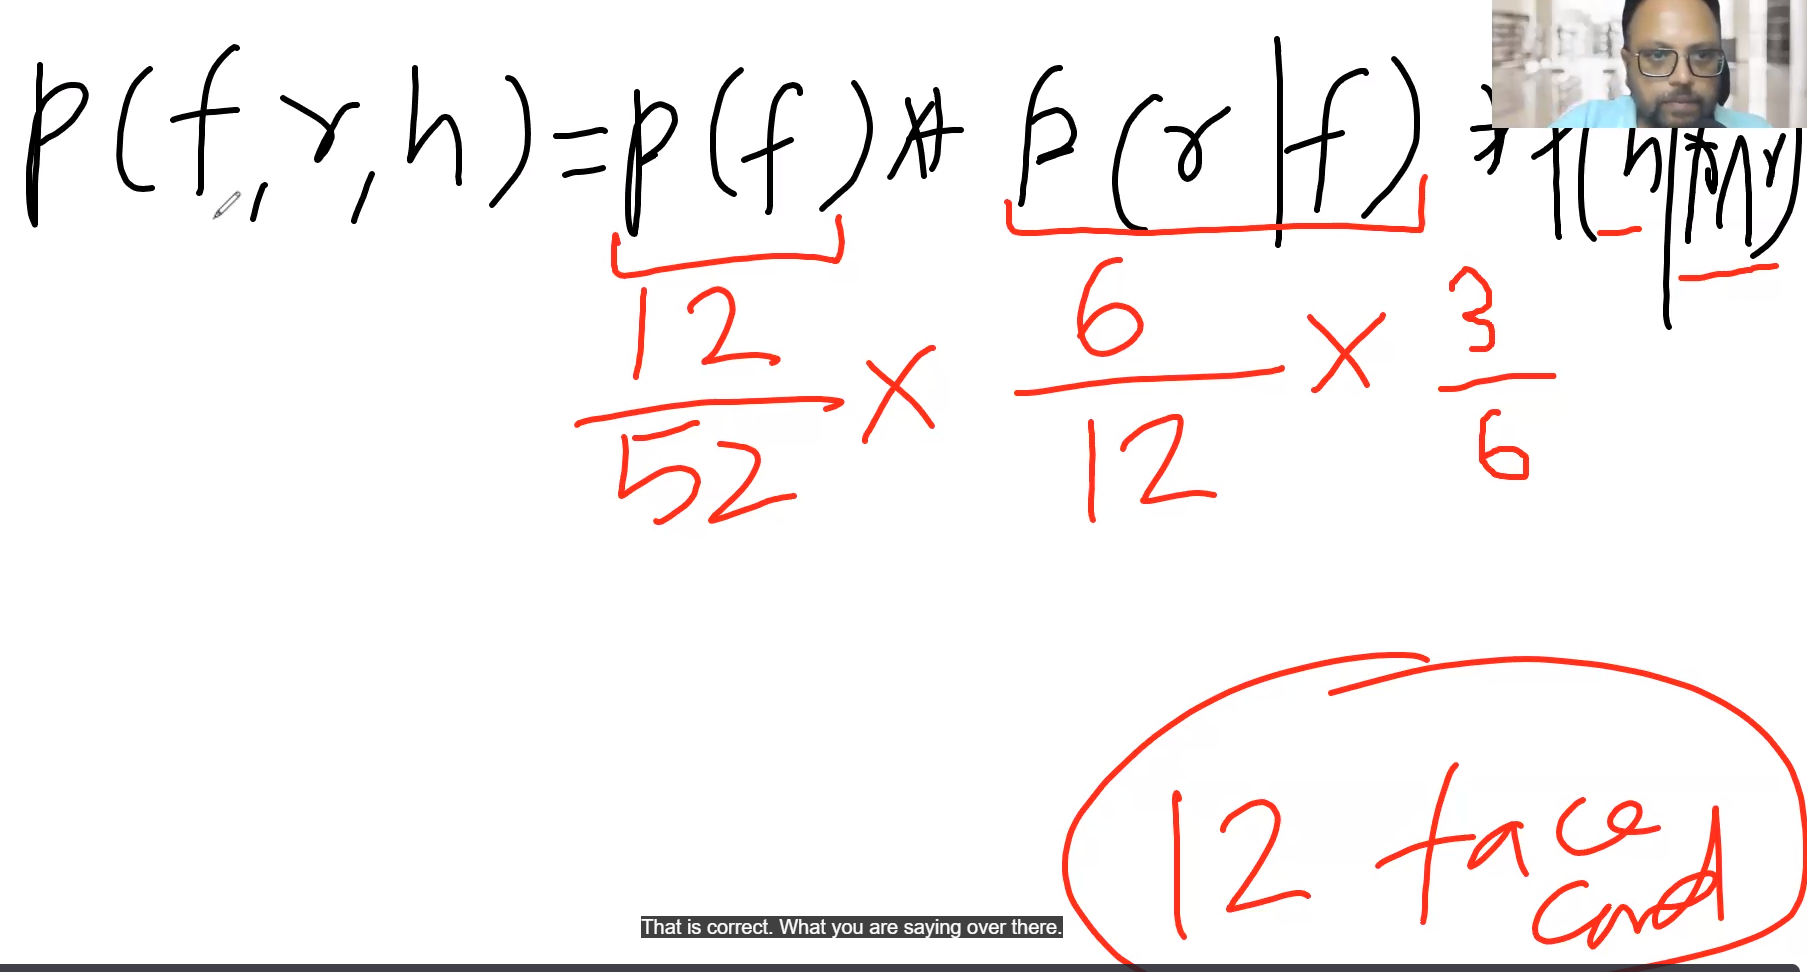 P(f, r, h) = P(f) * P(r|f) * P(h|f∩r)
12/52 × 6/12 × 3/6
12 face
card
That is correct. What you are saying over there.